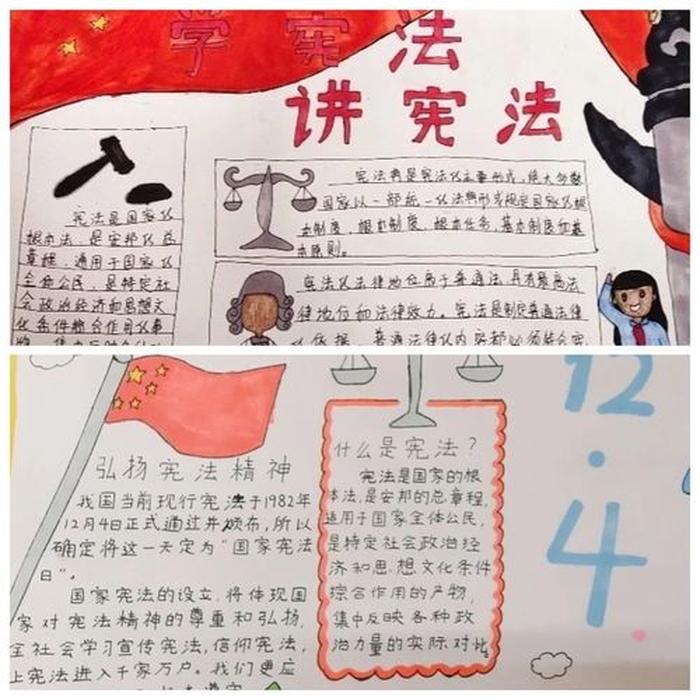 学宪法
讲宪法
宪法是国家化
根本法,是安邦化总
章程,适用于国家化
全体公民,是特定社
会政治经济和思想文
化条件综合作用化事
宪法典是宪法化主要形式,绝大多数
国家以一部统一化法典形式规定国家化根
本制度、根本制度、根本任务、基本制度和基
本原则。
宪法化法律地位高于普通法,具有最高法
律地位和法律效力。宪法是制定普通法律
化依据,普通法律化内容都必须符合宪
弘扬宪法精神
我国当前现行宪法于1982年
12月4日正式通过并颁布,所以
确定将这一天定为“国家宪法
日”。
国家宪法的设立,将体现国
家对宪法精神的尊重和弘扬,
全社会学习宣传宪法,信仰宪法,
上宪法进入千家万户。我们更应
什么是宪法?
宪法是国家的根
本法,是安邦的总章程,
适用于国家全体公民,
是特定社会政治经
济和思想文化条件
综合作用的产物,
集中反映各种政
治力量的实际对比
12
·
4